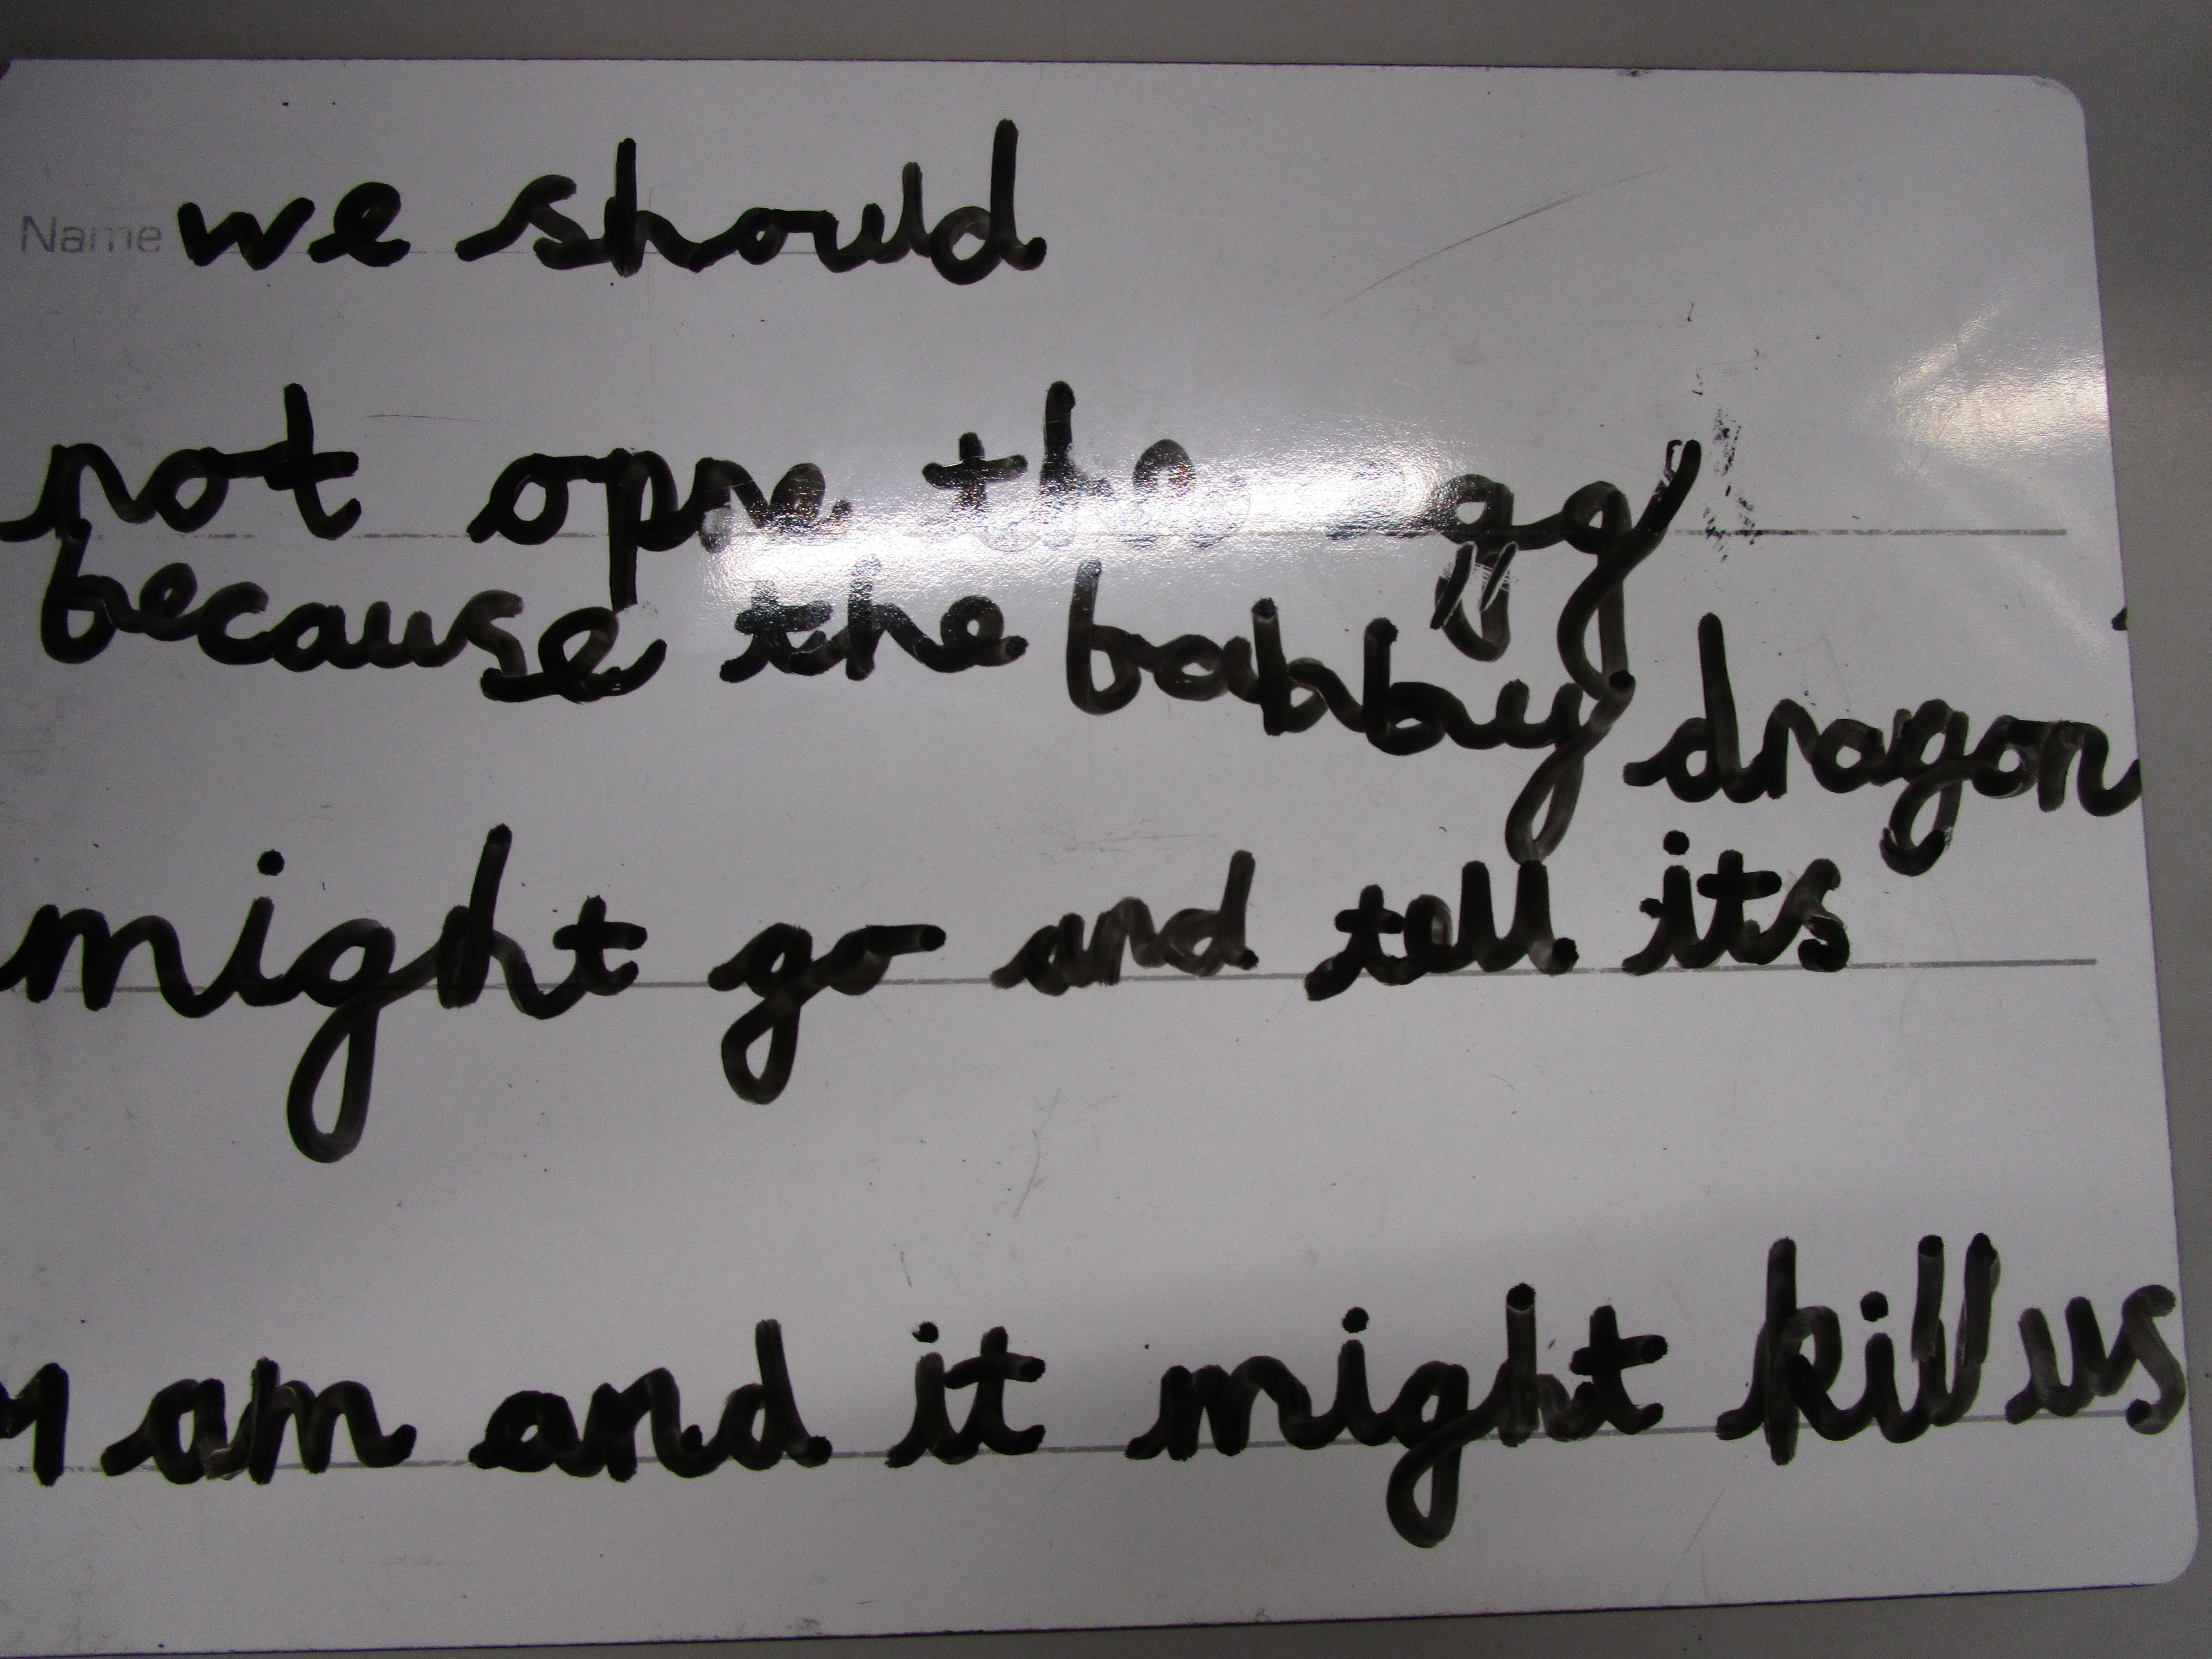 Name we should
not opne the egg
because the babby dragon
might go and tell its
am and it might kill us